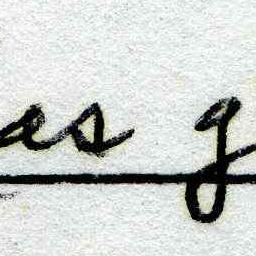 as g